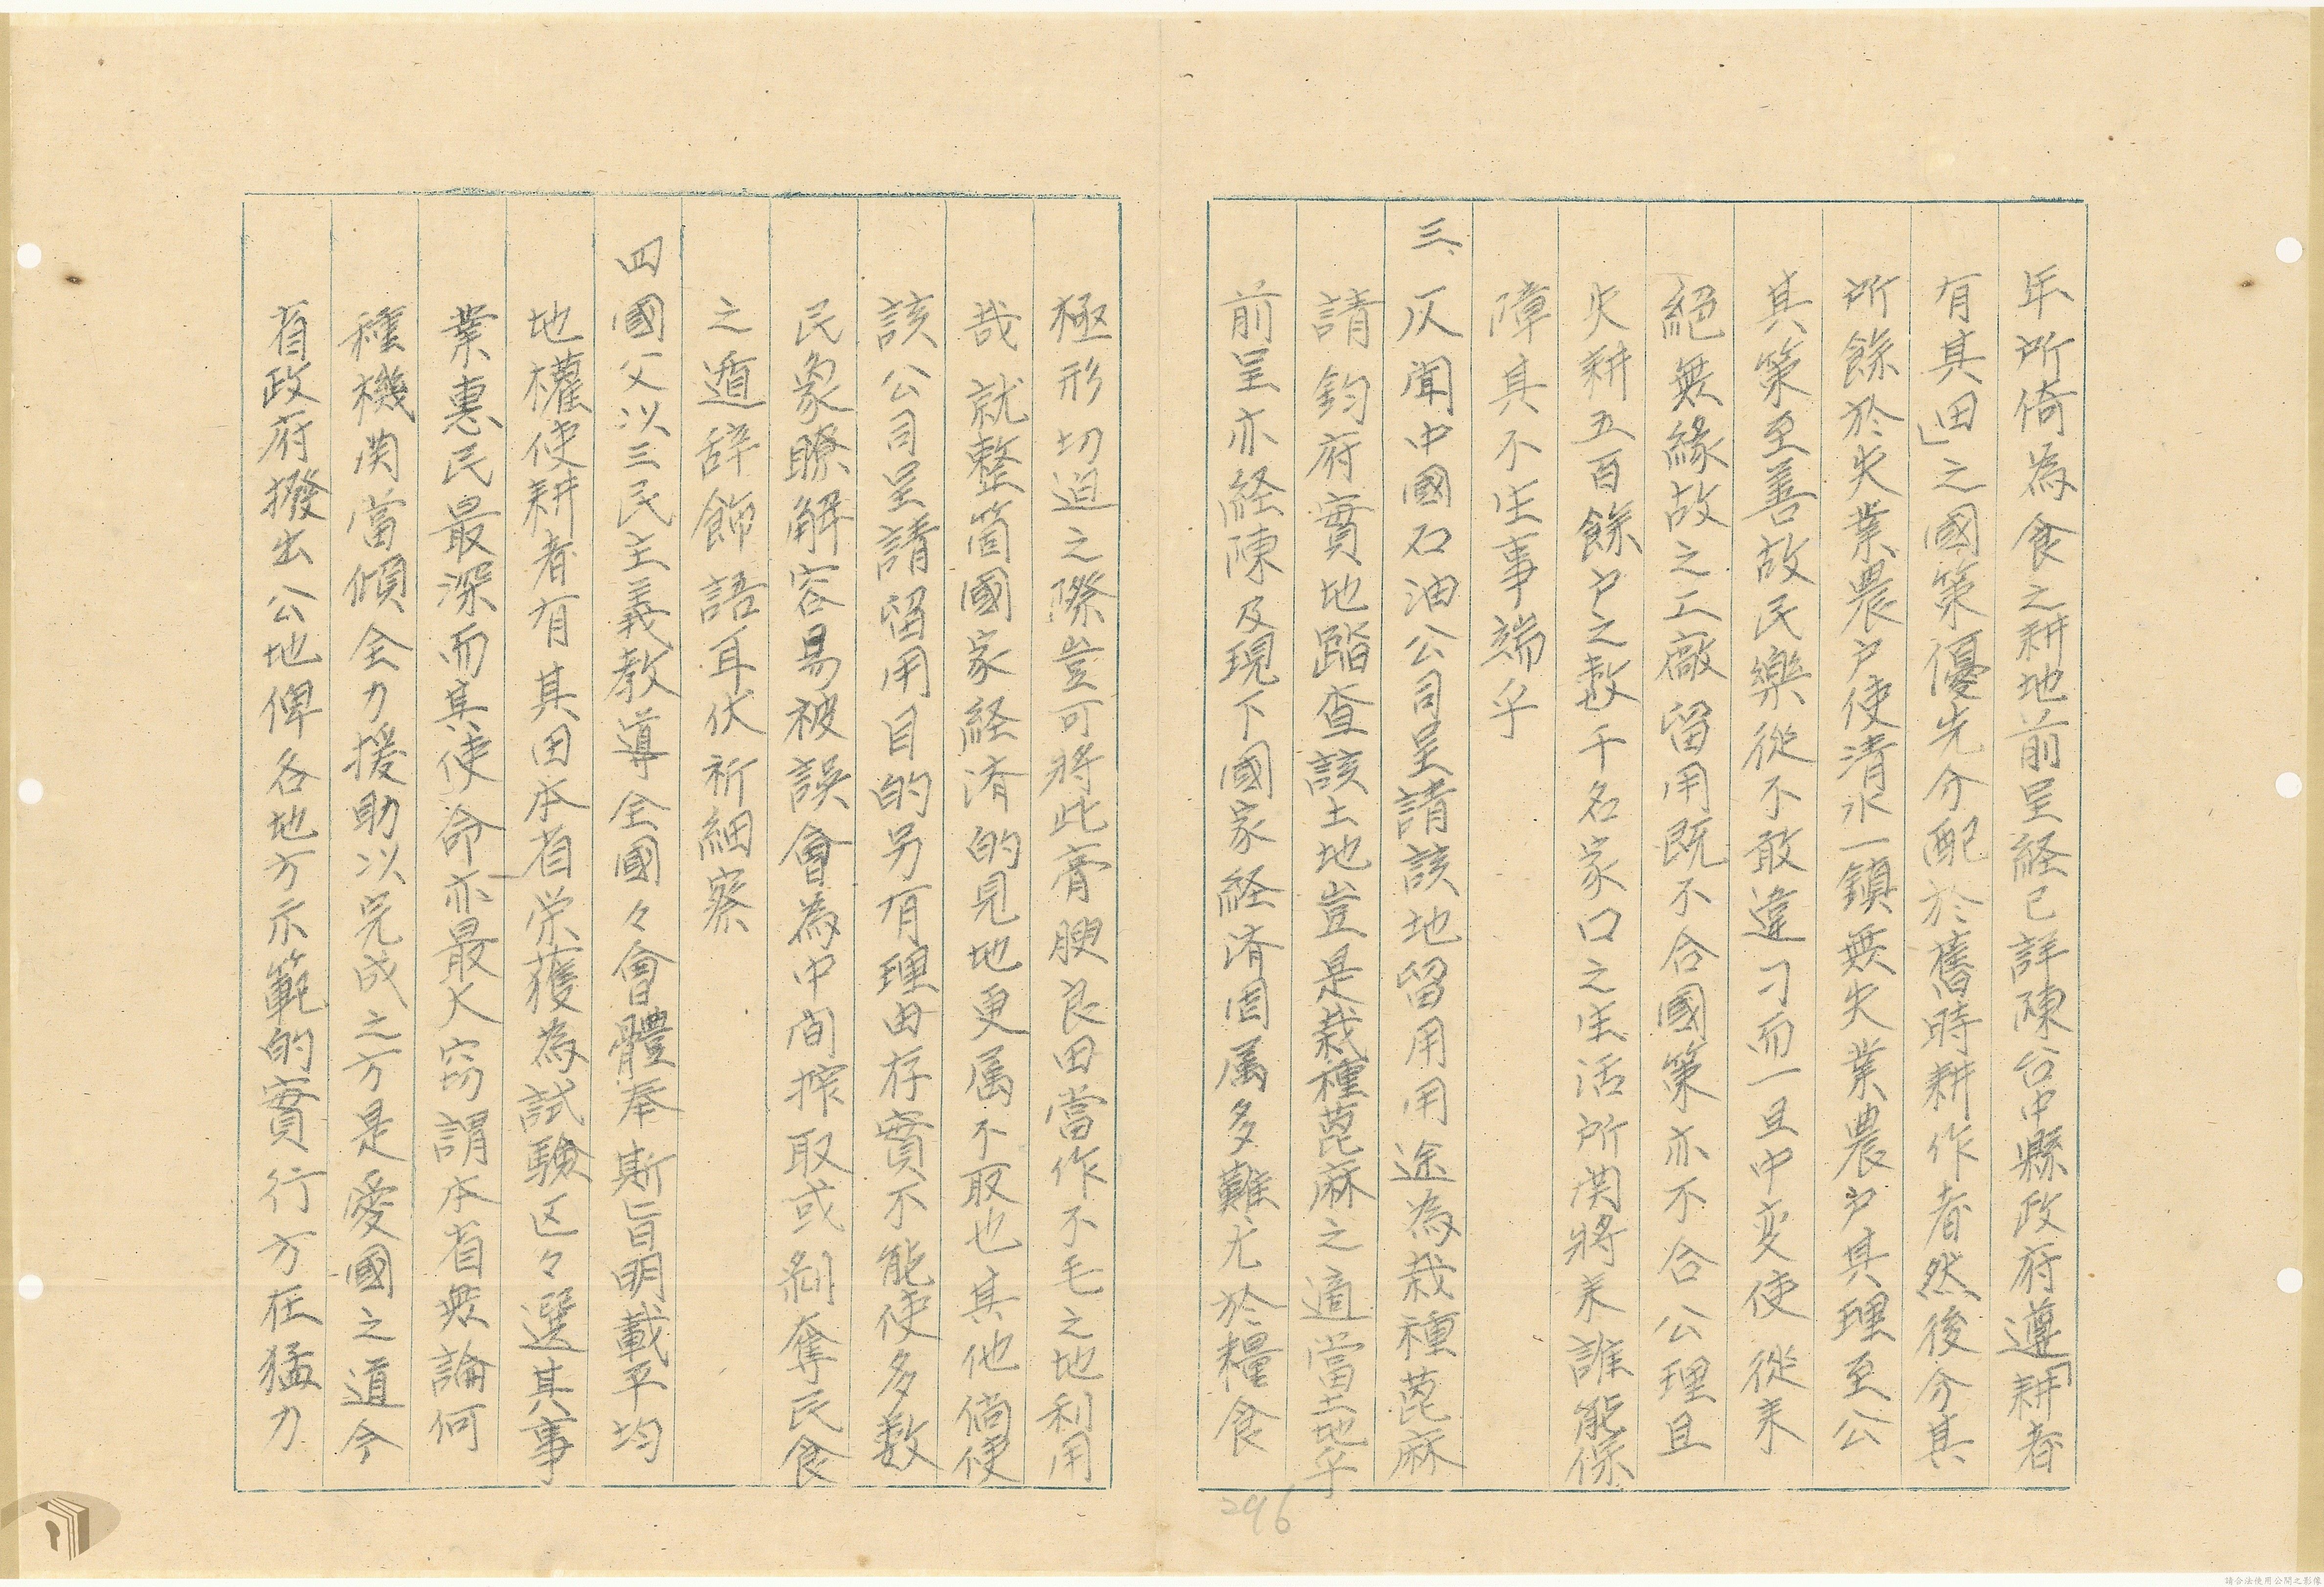 年所倚為食之耕地前呈経已詳陳台中縣政府遵「耕者
有其田」之國策優先分配於舊時耕作者然後分其
所餘於失業農户使清水一鎮無失業農户其理至公
其策至善故民樂從不敢違刁而一旦中変使從来
絕無緣故之工廠留用既不合國策亦不合公理且
失耕五百餘户之数千名家口之生活所関將来誰能保
障其不生事端乎
三、仄聞中國石油公司呈請該地留用用途為栽種萞麻
請鈞府實地踏查該土地豈是栽種萞麻之適當土地乎
前呈亦経陳及現下國家経済固属多難尤於糧食
極形切迫之際豈可將此膏腴良田當作不毛之地利用
哉 就整箇國家経済的見地更属不取也其他倘使
該公司呈請留用目的另有理由存實不能使多数
民象瞭解容易被誤會為中间搾取或剝奪民食
之遁辞飾語耳伏祈細察
四國父以三民主義教導全國々會體奉斯旨明載平均
地權使耕者有其田本省栄獲為試驗区々選其事
業惠民最深而其使命亦最大窃謂本省無論何
種機関當傾全力援助以完成之方是愛國之道今
省政府撥出公地俾各地方示範的實行方在猛力
296
請合法使用公開之影像